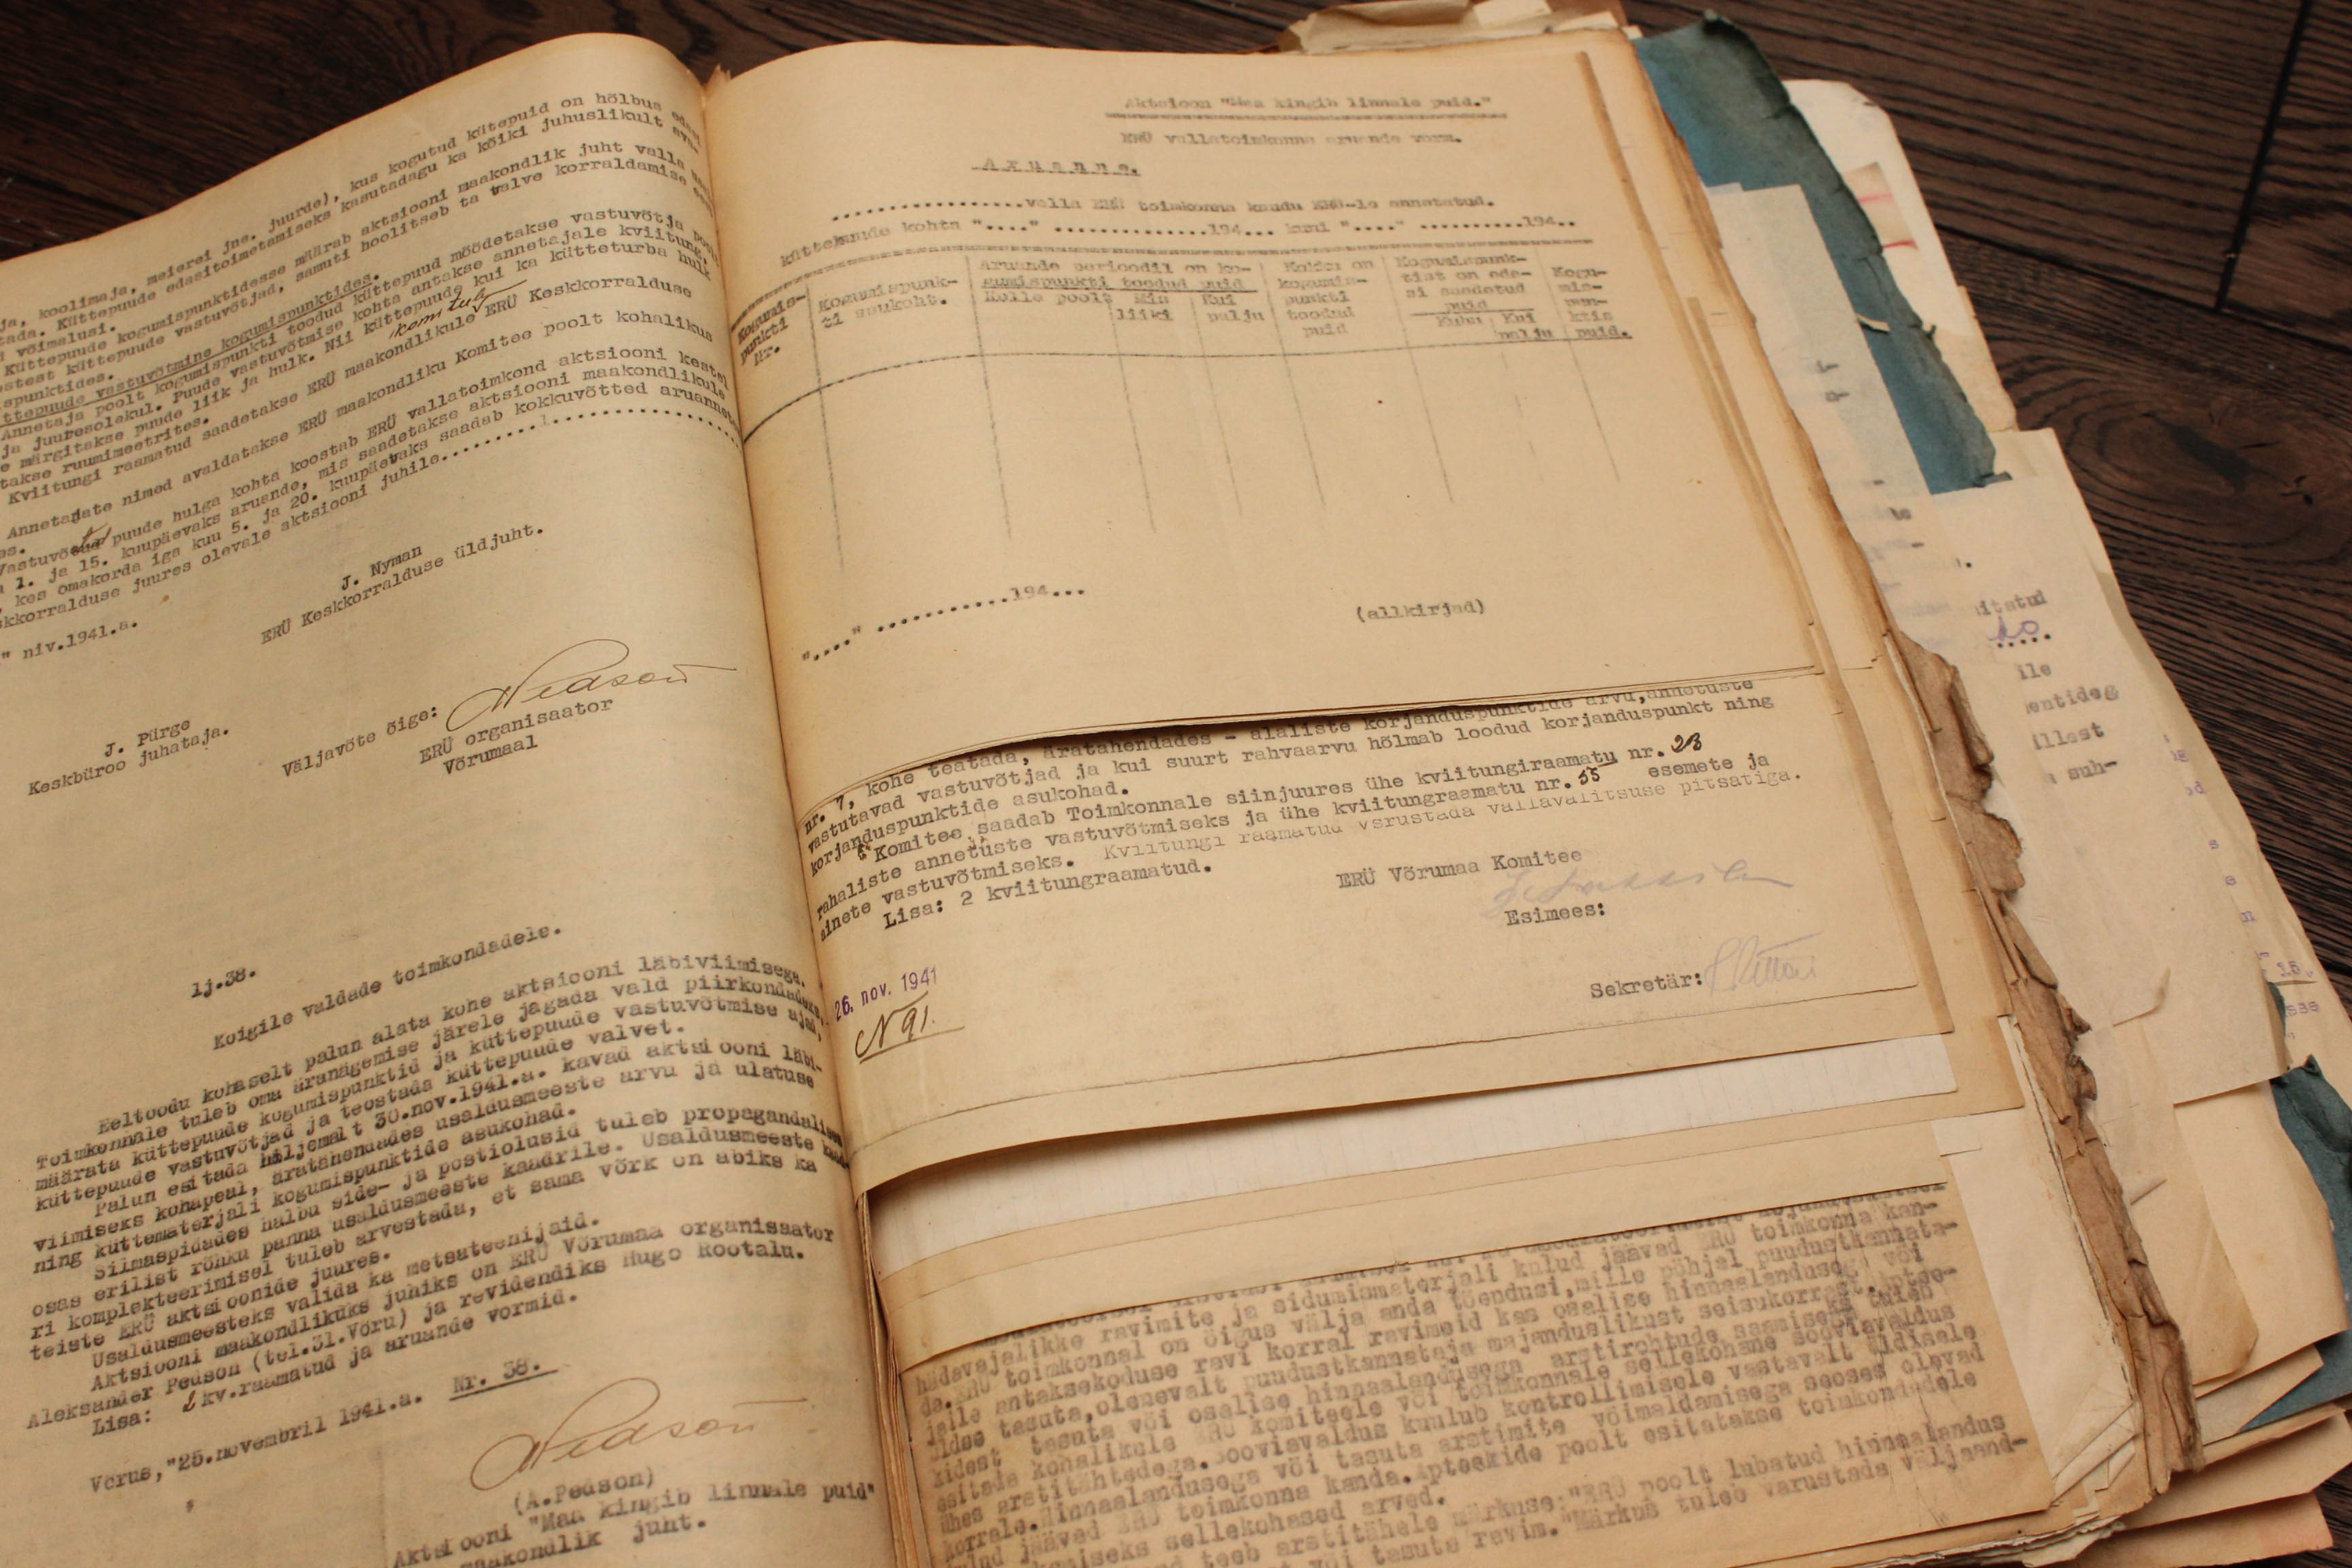 ja, koolimaja, meierei jne. juurde), kus kogutud kütepuid on hõlbus edasi
tada. Küttepuude edasitoimetamiseks kasutadagu ka kõiki juhuslikult ava-
võimalusi.
Küttepuude kogumispunktidesse määrab aktsiooni maakondlik juht valla
küttepuude vastuvõtjad, samuti hoolitseb ta valve korraldamise eest
spunktides.
ttepuude vastuvõtmine kogumispunktides.
Annetaja poolt kogumispunkti toodud küttepuud mõõdetakse vastuvõtja poolt
ja juuresolekul. Puude vastuvõtmise kohta antakse annetajale kviitung,
e märgitakse puude liik ja hulk. Nii küttepuude kui ka kütteturba hulk
takse ruumimeetrites.
komitule
Kviitungi raamatud saadetakse ERÜ maakondlikule ERÜ Keskkorralduse
Annetajate nimed avaldatakse ERÜ maakondliku Komitee poolt kohalikus
es.
Vastuvõetud puude hulga kohta koostab ERÜ vallatoimkond aktsiooni kestel
1. ja 15. kuupäevaks aruande, mis saadetakse aktsiooni maakondlikule
, kes omakorda iga kuu 5. ja 20. kuupäevaks saadab kokkuvõtted aruannetest
skkorralduse juures olevale aktsiooni juhile..........
" niv.1941.a.
J. Nyman
ERÜ Keskkorralduse üldjuht.
J. Pürge
Keskbüroo juhataja.
Väljavõte õige: Pedson
ERÜ organisaator
Võrumaal
lj.38.
Koigile valdade toimkondadele.
Eeltoodu kohaselt palun alata kohe aktsiooni läbiviimisega.
Toimkonnale tuleb oma äranägemise järele jagada vald piirkondadeks,
määrata küttepuude kogumispunktid ja küttepuude vastuvõtmise ajad,
küttepuude vastuvõtjad ja teostada küttepuude valvet.
Palun esitada hiljemalt 30.nov.1941.a. kavad aktsiooni läbi-
viimiseks kohapeal, äratähendades usaldusmeeste arvu ja ulatuse
ning küttematerjali kogumispunktide asukohad.
Silmaspidades halbu side- ja postiolusid tuleb propagandalises
osas erilist rõhku panna usaldusmeeste kaadrile. Usaldusmeeste kaad-
ri komplekteerimisel tuleb arvestada, et sama võrk on abiks ka
teiste ERÜ aktsioonide juures.
Usaldusmeesteks valida ka metsateenijaid.
Aktsiooni maakondlikuks juhiks on ERÜ Võrumaa organisaator
Aleksander Pedson (tel.31.Võru) ja revidendiks Hugo Rootalu.
Lisa: 2 kv.raamatud ja aruande vormid.
Võrus,"25.novembril 1941.a. Nr. 38.
Pedson
(A.Pedson)
Aktsiooni "Maa kingib linnale puid"
maakondlik juht.
Aktsioon "Maa kingib linnale puid."
ERÜ vallatoimkonna aruande vorm.
Aruanne.
..................valla ERÜ toimkonna kaudu ERÜ-le annetatud.
küttepuude kohta "...." ..............194... kuni "...." ..........194..
Kogumis-
punkti
Nr.
Kogumispunk-
ti asukoht.
Aruande perioodil on ko-
gumispunkti toodud puid
Kelle poolt
Mis
liiki
Kui
palju
Kokku on
kogumis-
punkti
toodud
puid
Kogumispunk-
tist on eda-
si saadetud
puid
Kuhu
Kui
palju
Kogu-
mis-
pun-
ktis
puid.
"...." ............194...
(allkirjad)
nr. 7, kohe teatada, äratähendades - alaliste korjanduspunktide arvu, annetuste
vastutavad vastuvõtjad ja kui suurt rahvaarvu hõlmab loodud korjanduspunkt ning
korjanduspunktide asukohad.
Komitee saadab Toimkonnale siinjuures ühe kviitungiraamatu nr. 23
rahaliste annetuste vastuvõtmiseks ja ühe kviitungraamatu nr. 55 esemete ja
ainete vastuvõtmiseks. Kviitungi raamatud varustada vallavalitsuse pitsatiga.
Lisa: 2 kviitungraamatud.
ERÜ Võrumaa Komitee
Esimees:
Sekretär:
26. nov. 1941
N 91.
hädavajalikke ravimite ja sidumismaterjali kulud jäävad ERÜ toimkonna kan-
da. ERÜ toimkonnal on õigus välja anda tõendusi, mille põhjal puudustkannata-
jaile antaksekoduse ravi korral ravimeid kas osalise hinnaalandusega või
täies tasuta, olenevalt puudustkannataja majanduslikust seisukorrast. Aptee-
kidest tasuta või osalise hinnaalandusega arstirohtude saamiseks tuleb
esitada kohalikule ERÜ komiteele või toimkonnale sellekohane sooviavaldus
ühes arstitähtedega. Sooviavaldus kuulub kontrollimisele vastavalt üldisele
korrale. Hinnaalandusega või tasuta arstimite võimaldamisega seoses olevad
kulud jäävad ERÜ toimkonna kanda. Apteekide poolt esitatakse toimkondadele
sellekohased arved.
teeb arstitähele märkuse: "ERÜ poolt lubatud hinnaalandus
või tasuta ravim." Märkus tuleb varustada väljaand-
itatud
10
....
ile
entideg
illest
suh-